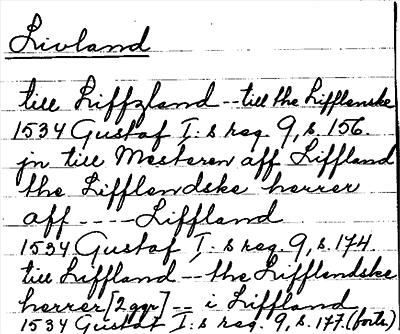 Livland
till Liffzland -- till the Lifflenske
1534 Gustaf I:s reg. 9, s. 156.
jn till Mesteren aff Liffland
the Lifflendske herrer
aff ---- Liffland
1534 Gustaf I:s reg. 9, s. 174.
till Liffland -- the Lifflendske
herrer [2 ggr] -- i Liffland
1534 Gustaf I:s reg. 9, s. 177 (forts.)